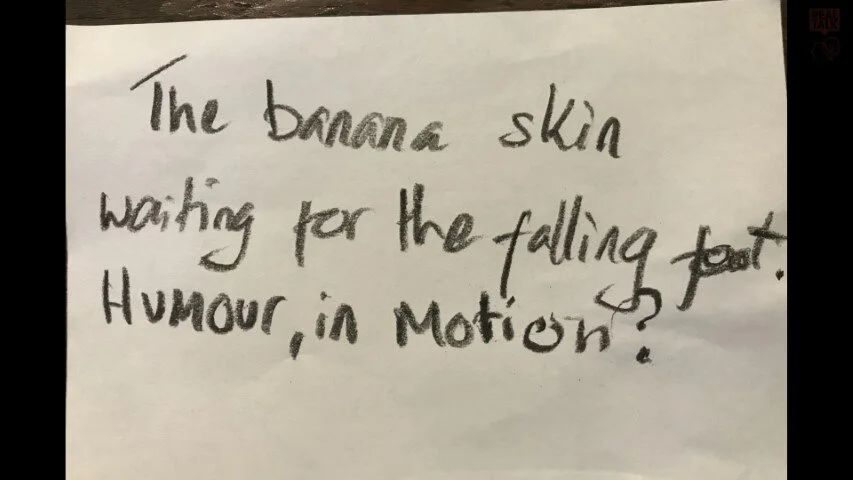 The banana skin
waiting for the falling foot.
Humour, in Motion?